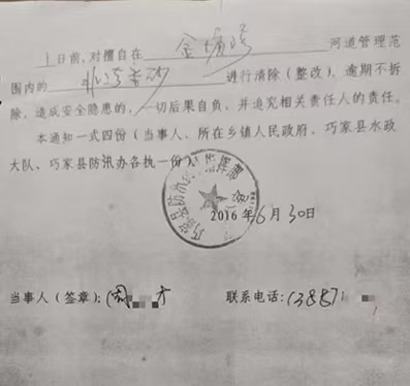 日前，对擅自在 金塘 河道管理范
围内的 进行清除（整改），逾期不拆
除，造成安全隐患的，一切后果自负，并追究相关责任人的责任。
本通知一式四份（当事人、所在乡镇人民政府、巧家县水政
大队、巧家县防汛办各执一份）
巧家县防汛 指挥部
2016年6月30日
当事人（签章）：周 才
联系电话：138871